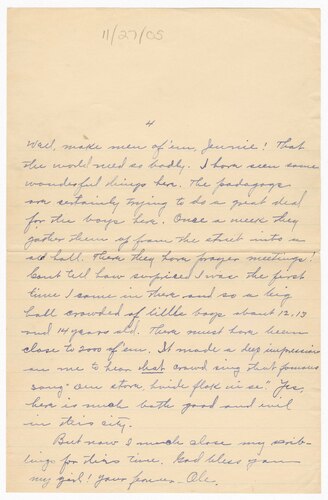 11/27/05
4
Well, make men of 'em, Jennie! That
the world need so badly. I have seen some
wonderful things her. The padagogs
are certainly trying to do a great deal
for the boys her. Once a week they
gather them up from the street into a
hall. There they have prayer meetings!
Cant tell how surpriced I was the first
time I came in there and so a big
hall crowded of little boys about 12, 13
and 14 years old. There must have been
close to 2000 of 'em. It made a deep impression
on me to hear that crowd sing that famous
song "den store hvide flok vi se" Yes,
her is much both good and evil
in this city.
But now I much close my scrib-
lings for this time. God bless you
my girl! Your Ole.